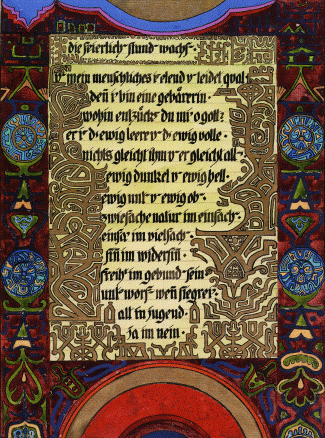 die feierlich stund wachs·
O mein menschliches & elend & leidet qual
deñ i bin eine gebärerin·
wohin entzückst du mi o gott?
er i d· ewig leere & d· ewig volle·
nichts gleicht ihm & er gleicht all·
ewig dunkel & ewig hell·
ewig unt & ewig ob·
zwiefache natur im einfach·
einfach im vielfach·
siñ im widersiñ·
freih· im gebund·sein·
unt·worf· weñ siegrei·
alt in jugend·
ja im nein·